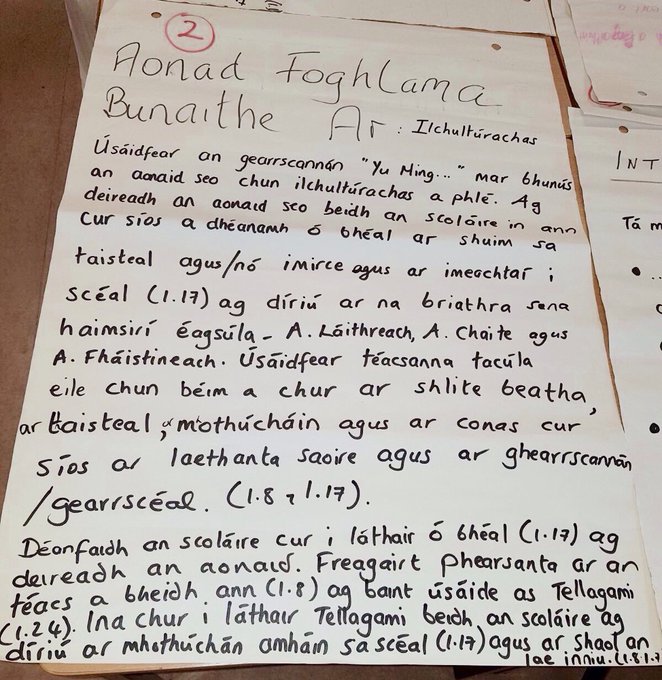 2
Aonad Foghlama
Bunaithe Ar: Ilchultúrachas
Úsáidfear an gearrscannán "Yu Ming..." mar bhunús
an aonaid seo chun ilchultúrachas a phlé. Ag
deireadh an aonaid seo beidh an scoláire in ann
cur síos a dhéanamh ó bhéal ar shuim sa
taisteal agus/nó imirce agus ar imeachtaí i
scéal (1.17) ag díriú ar na briathra sna
haimsirí éagsúla - A. Láithreach, A. Chaite agus
A. Fháistineach. Úsáidfear téacsanna tacúla
eile chun béim a chur ar shlite beatha,
ar taisteal, mothúcháin agus ar conas cur
síos ar laethanta saoire agus ar ghearrscannán
/gearrscéal. (1.8, 1.17).
Déonfaidh an scoláire cur i láthair ó bhéal (1.17) ag
deireadh an aonaid. Freagairt phearsanta ar an
téacs a bheidh ann (1.8) ag baint úsáide as Tellagami
(1.24). Ina chur i láthair Tellagami beidh an scoláire ag
díriú ar mhothúchán amháin sa scéal (1.17) agus ar shaol an
lae inniu. (1.8.1.
INT
Tá m